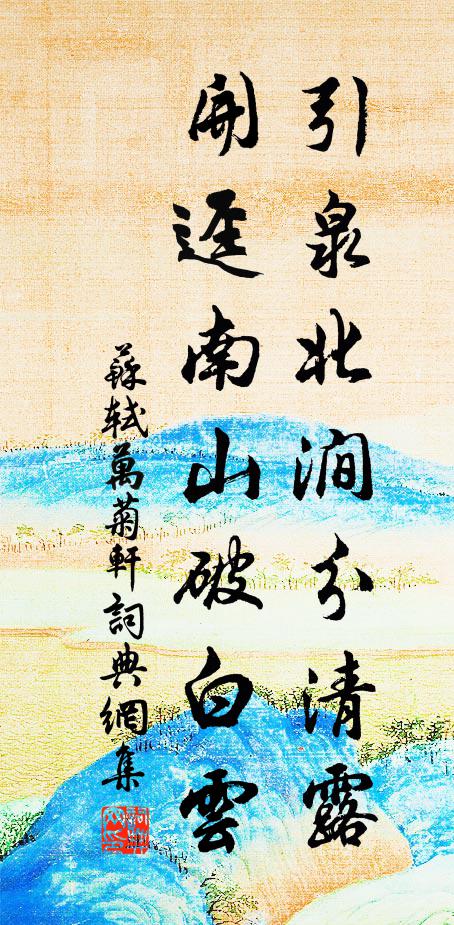 引泉北澗分清露
開逕南山破白雲
蘇軾萬菊軒詞典網集